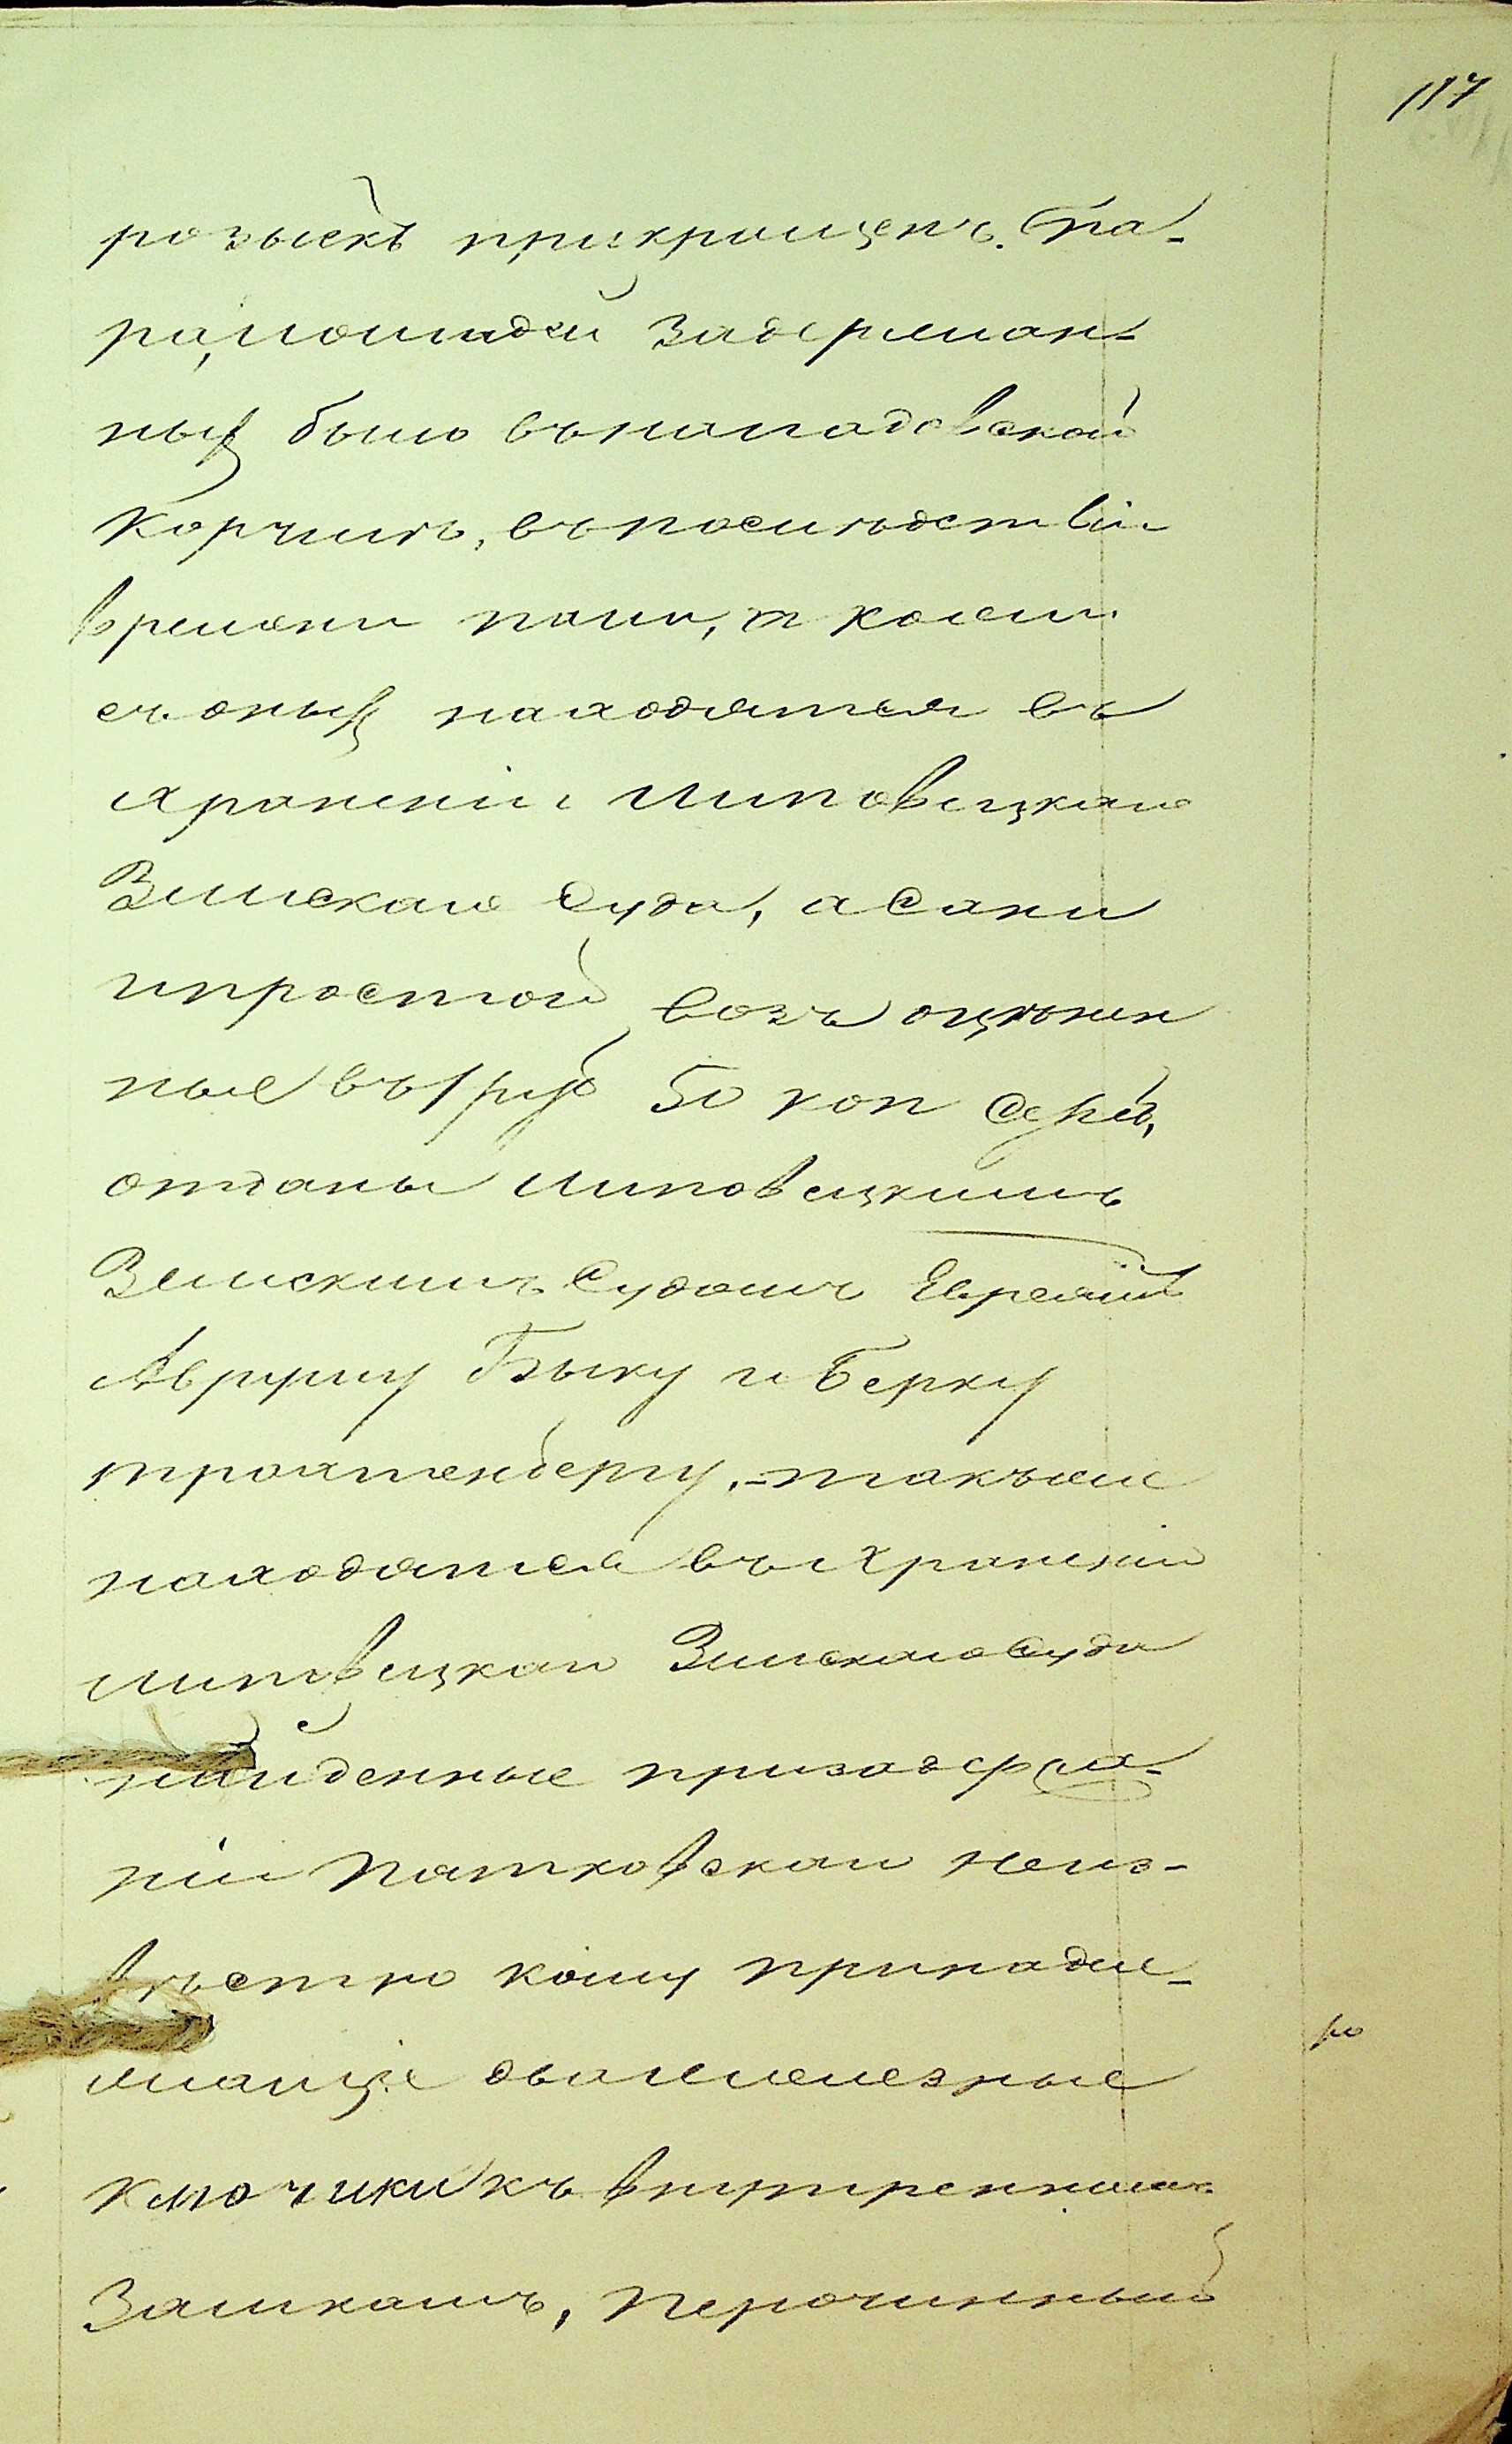 117
розыскъ прикращенъ. Па-
ра, лошадей задержан-
ныхъ было въ нападовской
Корчмѣ, въ послѣдствіи
времени пали, а кожи
съ оныхъ находятся въ
храненіи Липовецкаго
Земскаго Суда, а Сани
и простой возъ оцѣнен
ные въ 1 руб 50 коп Сереб,
отданы Липовецкимъ
Земскимъ Судомъ Евреямъ
Авруму Быку и Берку
Трахтенбергу, - такъ же
находятся въ Храненіи
Липовецкаго Земскаго Суда
найденные при задержа-
ніи Патковскаго неиз-
вѣстно кому принадле-
жащіе два железные
ключики къ внутреннимъ
Замкамъ, Перочинный